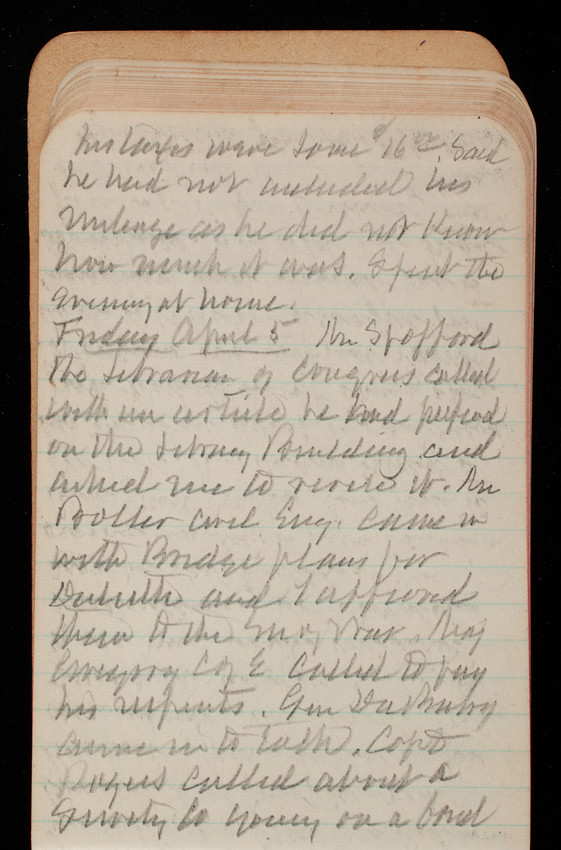 his taxes were some $16 00. Said
he had not included his
mileage as he did not know
how much it was. Spent the
evening at home.
Friday April 5 Mr Spofford
the Librarian of Congress called
with an article he had prepared
on the Library Building and
asked me to revise it. Mr
Boller Civil Eng. came in
with Bridge plans for
Duluth and I approved
them to the Sec of War. Maj
Gregory C of E called to pay
his respects. Gen DuBarry
came in to talk. Capt
Rogers called about a
Surety Co going on a bond